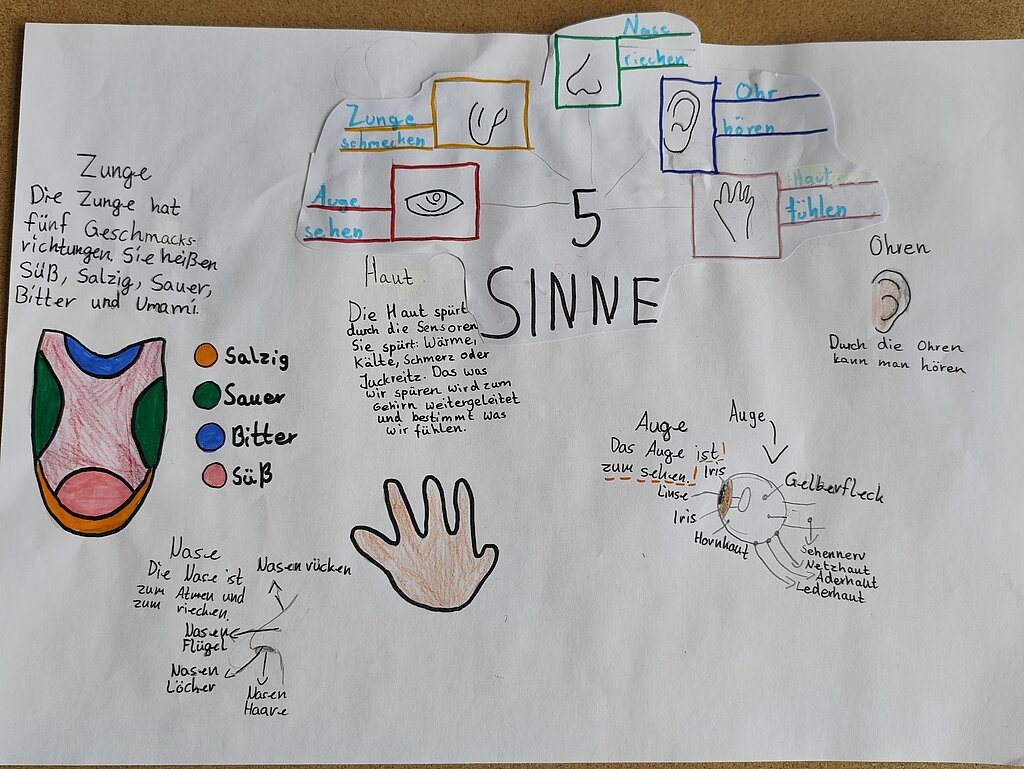 Nase
riechen
Ohr
hören
Zunge
schmecken
Haut
fühlen
Auge
sehen
5
SINNE
Zunge
Die Zunge hat
fünf Geschmacks-
richtungen. Sie heißen
Süß, Salzig, Sauer,
Bitter und Umami.
Salzig
Sauer
Bitter
Süß
Haut
Die Haut spürt
durch die Sensoren
Sie spürt: Wärme,
Kälte, Schmerz oder
Juckreitz. Das was
wir spüren wird zum
Gehirn weitergeleitet
und bestimmt was
wir fühlen.
Ohren
Durch die Ohren
kann man hören
Auge
Das Auge ist
zum sehen.
Auge
Iris
Linse
Iris
Hornhaut
Gelberfleck
Sehennerv
Netzhaut
Aderhaut
Lederhaut
Nase
Die Nase ist
zum Atmen und
zum riechen.
Nasenrücken
Nasen
Flügel
Nasen
Löcher
Nasen
Haare